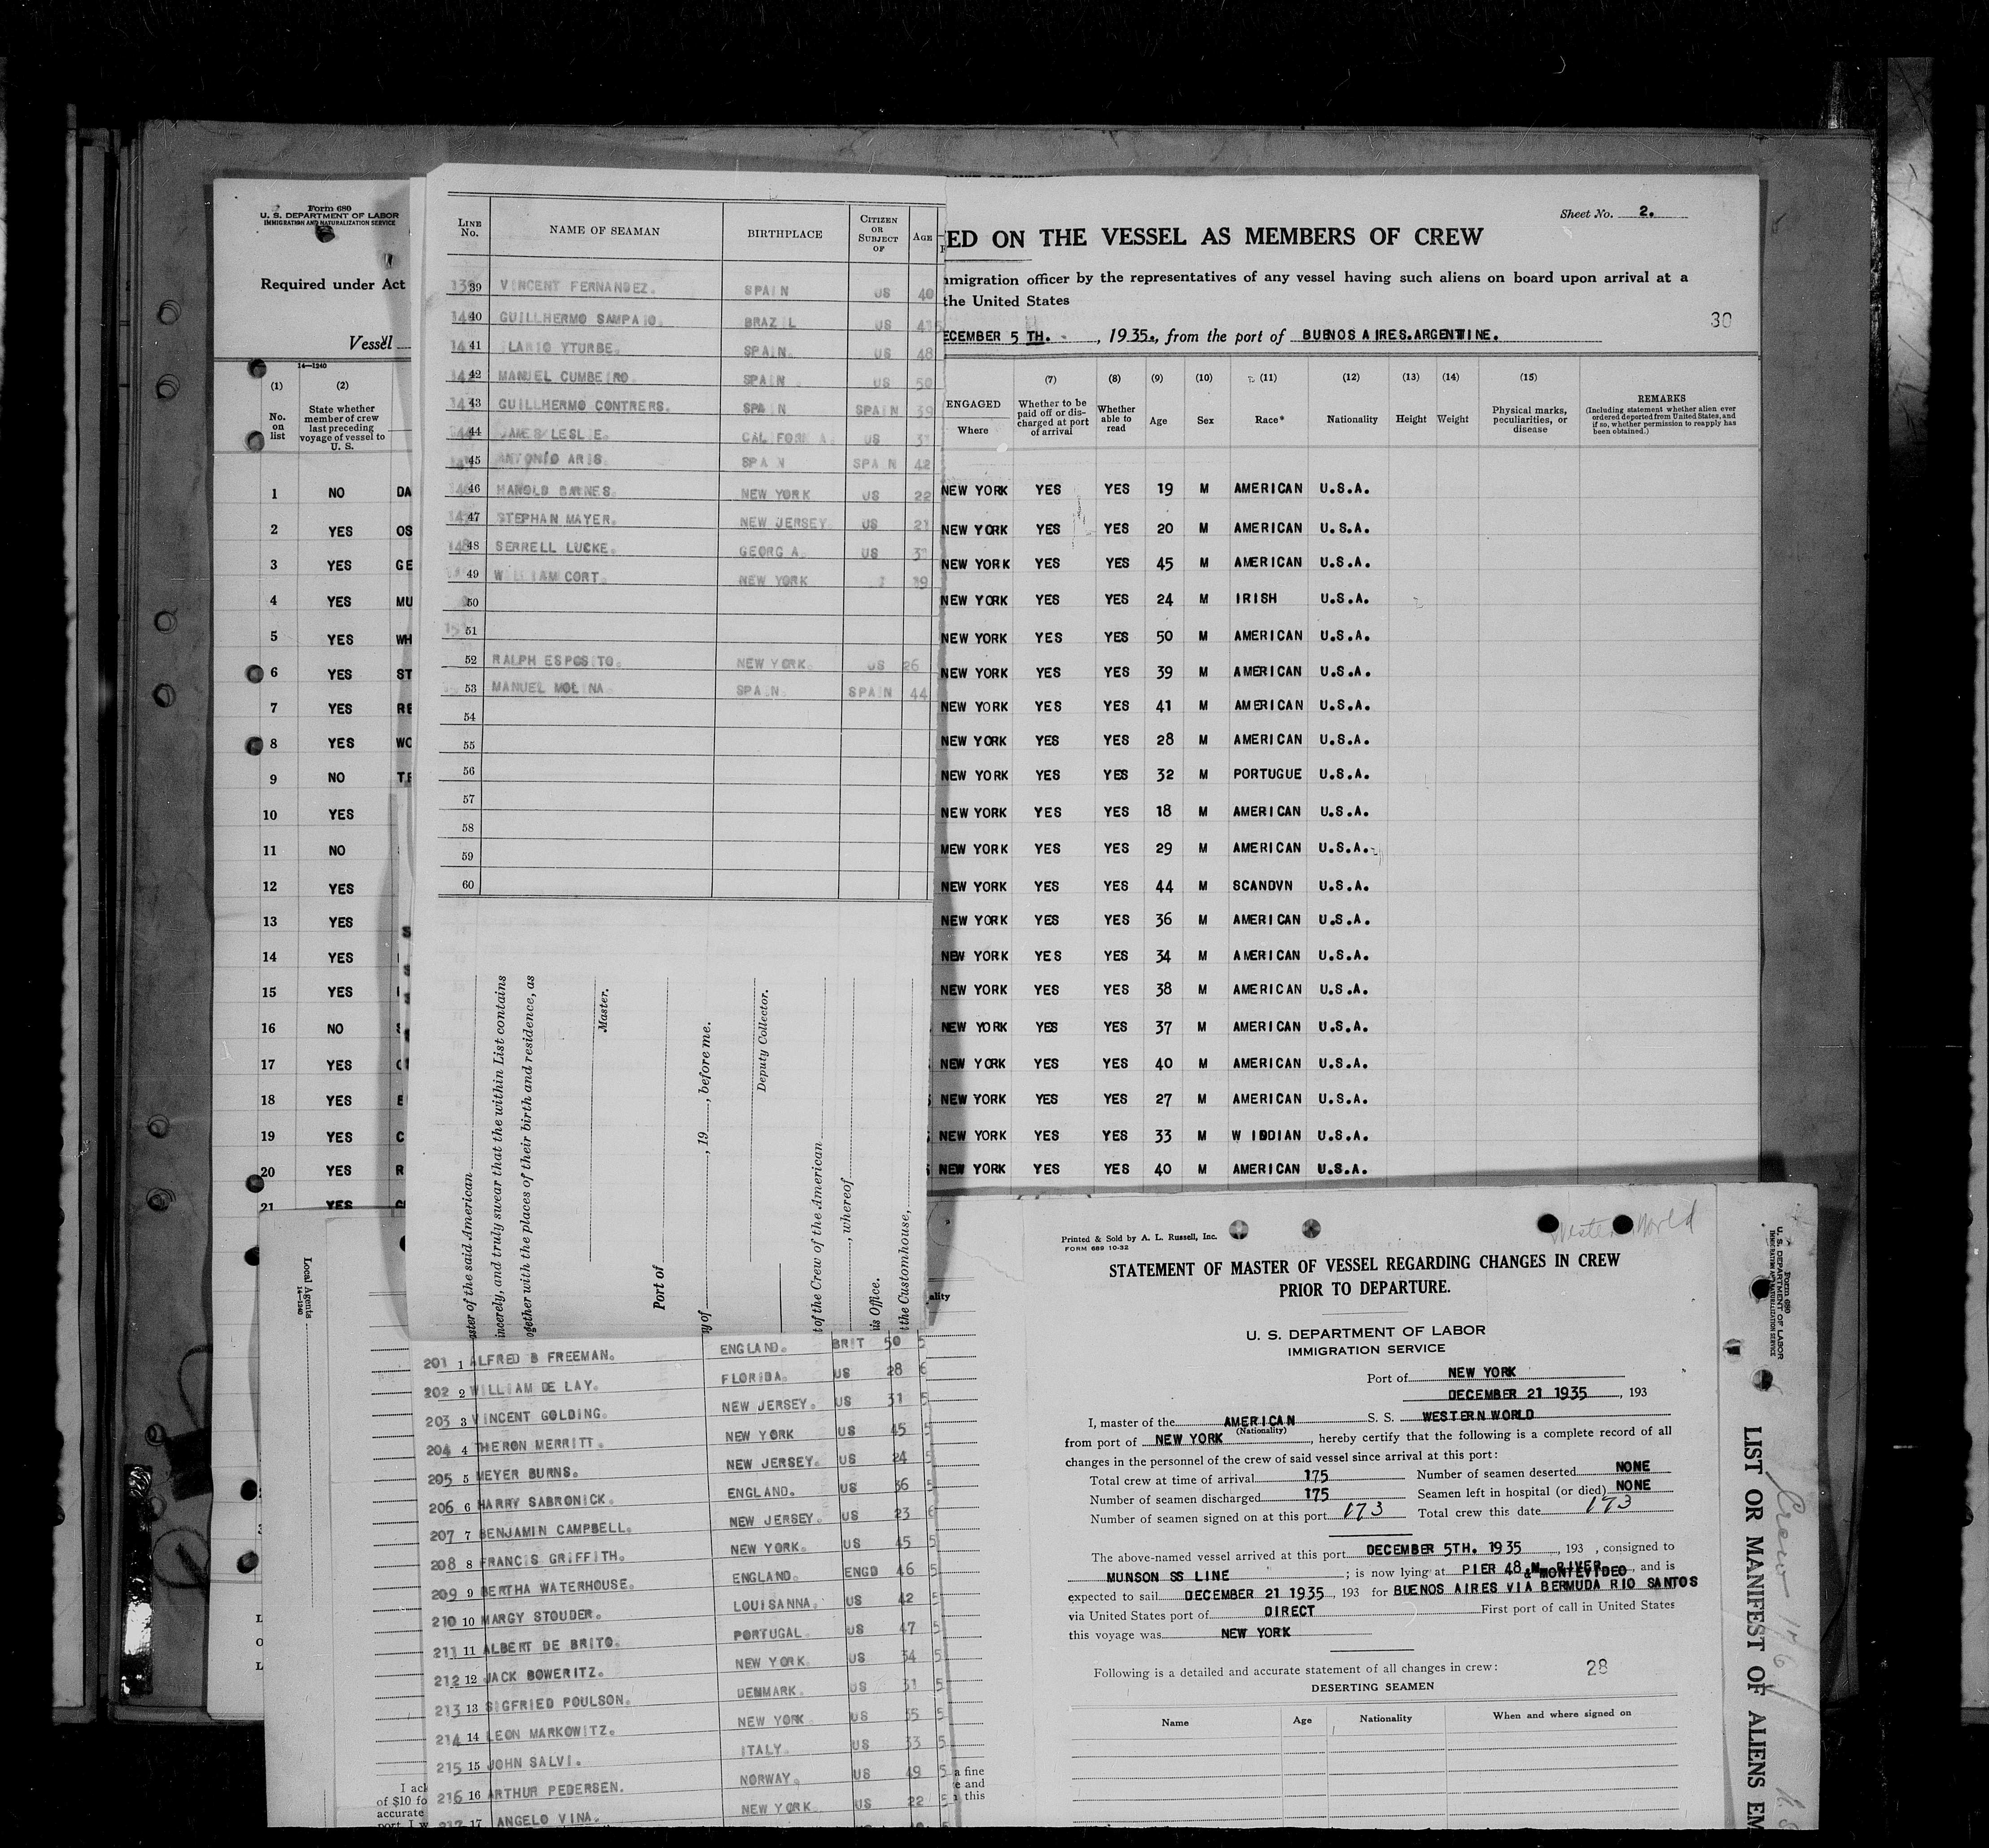 Form 680
U. S. DEPARTMENT OF LABOR
IMMIGRATION AND NATURALIZATION SERVICE
Required under Act
Vessel
14-1240
(1) (2)
No. on list
State whether member of crew last preceding voyage of vessel to U. S.
1 NO DA
2 YES OS
3 YES GE
4 YES MU
5 YES WH
6 YES ST
7 YES RE
8 YES WO
9 NO TE
10 YES
11 NO
12 YES
13 YES
14 YES
15 YES
16 NO
17 YES
18 YES
19 YES C
20 YES R
21 YES
LINE No. NAME OF SEAMAN BIRTHPLACE CITIZEN OR SUBJECT OF AGE
139 39 VINCENT FERNANDEZ. SPAIN US 40
140 40 GUILLHERMO SAMPAIO. BRAZIL US 41
41 ILARIO YTURBE. SPAIN. US 48
42 MANUEL CUMBEIRO. SPAIN. US 50
43 GUILLHERMO CONTRERS. SPAIN SPAIN 39
44 JAMES LESLIE. CALIFORNIA US
45 ANTONIO ARIS. SPAIN SPAIN 42
46 HAROLD BARNES. NEW YORK US 22
47 STEPHAN MAYER. NEW JERSEY US 21
148 48 SERRELL LUCKE. GEORGIA. US
49 WILLIAM CORT. NEW YORK
50
51
52 RALPH ESPOSITO. NEW YORK. US 26
53 MANUEL MOLINA. SPAIN. SPAIN 44
54
55
56
57
58
59
60
Sheet No. 2.
ED ON THE VESSEL AS MEMBERS OF CREW
mmigration officer by the representatives of any vessel having such aliens on board upon arrival at a
the United States
30
ECEMBER 5 TH. , 1935., from the port of BUENOS AIRES.ARGENTINE.
ENGAGED
Where
(7) Whether to be paid off or discharged at port of arrival
(8) Whether able to read
(9) Age
(10) Sex
(11) Race*
(12) Nationality
(13) Height
(14) Weight
(15) Physical marks, peculiarities, or disease
REMARKS
(Including statement whether alien ever ordered deported from United States, and if so, whether permission to reapply has been obtained.)
NEW YORK YES YES 19 M AMERICAN U.S.A.
NEW YORK YES YES 20 M AMERICAN U.S.A.
NEW YORK YES YES 45 M AMERICAN U.S.A.
NEW YORK YES YES 24 M IRISH U.S.A.
NEW YORK YES YES 50 M AMERICAN U.S.A.
NEW YORK YES YES 39 M AMERICAN U.S.A.
NEW YORK YES YES 41 M AMERICAN U.S.A.
NEW YORK YES YES 28 M AMERICAN U.S.A.
NEW YORK YES YES 32 M PORTUGUE U.S.A.
NEW YORK YES YES 18 M AMERICAN U.S.A.
MEW YORK YES YES 29 M AMERICAN U.S.A.
NEW YORK YES YES 44 M SCANDVN U.S.A.
NEW YORK YES YES 36 M AMERICAN U.S.A.
NEW YORK YES YES 34 M AMERICAN U.S.A.
NEW YORK YES YES 38 M AMERICAN U.S.A.
NEW YORK YES YES 37 M AMERICAN U.S.A.
NEW YORK YES YES 40 M AMERICAN U.S.A.
NEW YORK YES YES 27 M AMERICAN U.S.A.
NEW YORK YES YES 33 M W INDIAN U.S.A.
NEW YORK YES YES 40 M AMERICAN U.S.A.
ster of the said American
incerely, and truly swear that the within List contains
ogether with the places of their birth and residence, as
Master.
Port of
y of , 19 , before me.
Deputy Collector.
t of the Crew of the American
, whereof
is Office.
t the Customhouse,
201 1 ALFRED B FREEMAN. ENGLAND. BRIT 50 5
202 2 WILLIAM DE LAY. FLORIDA. US 28 6
203 3 VINCENT GOLDING. NEW JERSEY. US 31 5
204 4 THERON MERRITT. NEW YORK US 45 5
205 5 MEYER BURNS. NEW JERSEY. US 24 5
206 6 HARRY SABRONICK. ENGLAND. US 36 5
207 7 BENJAMIN CAMPBELL. NEW JERSEY. US 23 6
208 8 FRANCIS GRIFFITH. NEW YORK. US 45 5
209 9 BERTHA WATERHOUSE. ENGLAND. ENGD 46 5
210 10 MARGY STOUDER. LOUISANNA. US 42 5
211 11 ALBERT DE BRITO. PORTUGAL. US 47 5
212 12 JACK BOWERITZ. NEW YORK. US 34 5
213 13 SIGFRIED POULSON. DENMARK. US 31 5
214 14 LEON MARKOWITZ. NEW YORK. US 35 5
215 15 JOHN SALVI. ITALY. US 33 5
216 16 ARTHUR PEDERSEN. NORWAY. US 49 5
17 ANGELO VINA. NEW YORK. US 22 5
Local Agents
14-1240
ality
I ack
of $10 fo
accurate
port. I w
a fine
e and
this
Western World
Printed & Sold by A. L. Russell, Inc.
FORM 689 10-32
STATEMENT OF MASTER OF VESSEL REGARDING CHANGES IN CREW
PRIOR TO DEPARTURE.
U. S. DEPARTMENT OF LABOR
IMMIGRATION SERVICE
Port of NEW YORK
DECEMBER 21 1935 , 193
I, master of the AMERICAN S. S. WESTERN WORLD
(Nationality)
from port of NEW YORK , hereby certify that the following is a complete record of all
changes in the personnel of the crew of said vessel since arrival at this port:
Total crew at time of arrival 175 Number of seamen deserted NONE
Number of seamen discharged 175 Seamen left in hospital (or died) NONE
Number of seamen signed on at this port 173 Total crew this date 173
The above-named vessel arrived at this port DECEMBER 5TH. 1935 , 193 , consigned to
MUNSON SS LINE ; is now lying at PIER 48 N. RIVER , and is
& MONTEVIDEO
expected to sail DECEMBER 21 1935 , 193 for BUENOS AIRES VIA BERMUDA RIO SANTOS
via United States port of DIRECT First port of call in United States
this voyage was NEW YORK
Following is a detailed and accurate statement of all changes in crew: 28
DESERTING SEAMEN
Name Age Nationality When and where signed on
Form 680
U. S. DEPARTMENT OF LABOR
IMMIGRATION AND NATURALIZATION SERVICE
LIST OR MANIFEST OF ALIENS EM
Crew